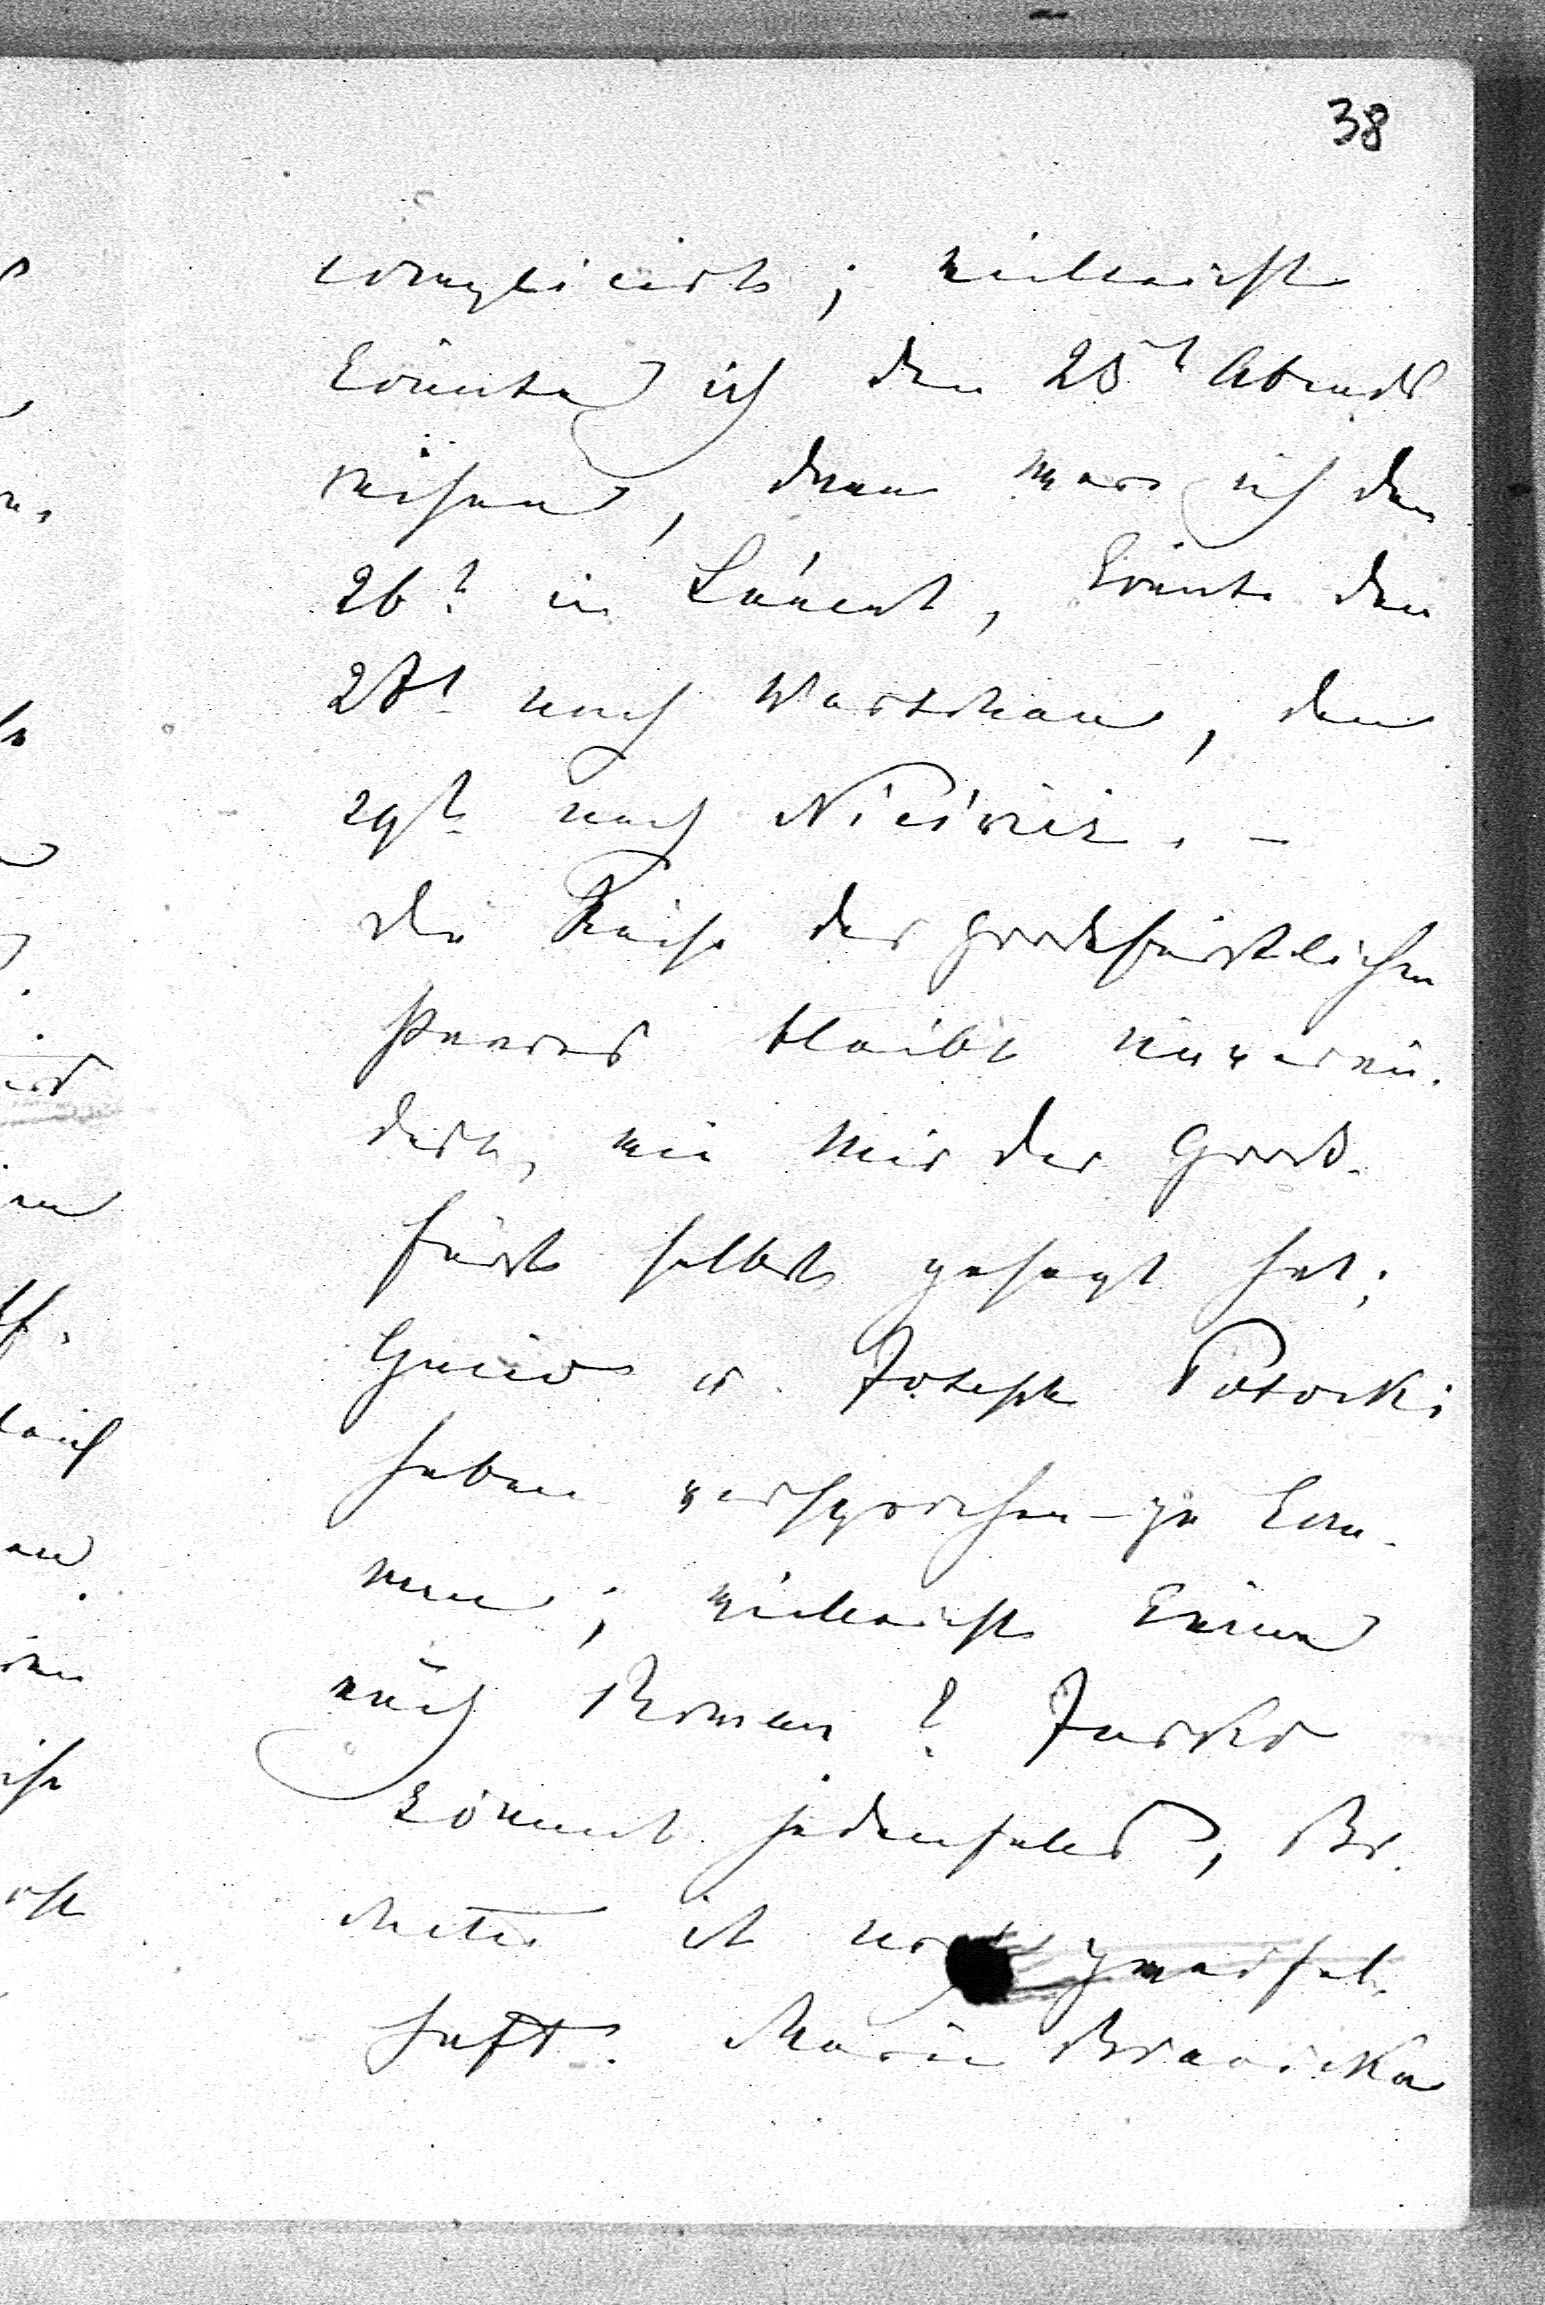 38
complicirt; vielleicht
könnte ich den 25t Abends
reisen, dann wär ich den
26t in Łańcut, könnte den
27t nach Warschau, den
29t nach Nieśwież. –
Die Reise des großfürstlichen
Paares bleibt unverän-
dert, wie mir der Groß-
fürst selbst gesagt hat;
Gucio u. Joseph Potocki
haben versprochen zu kom-
men; vielleicht käme
auch Roman? Jurko
kommt jedenfalls, Br.
ist noch zweifel-
haft. Marie Branicka